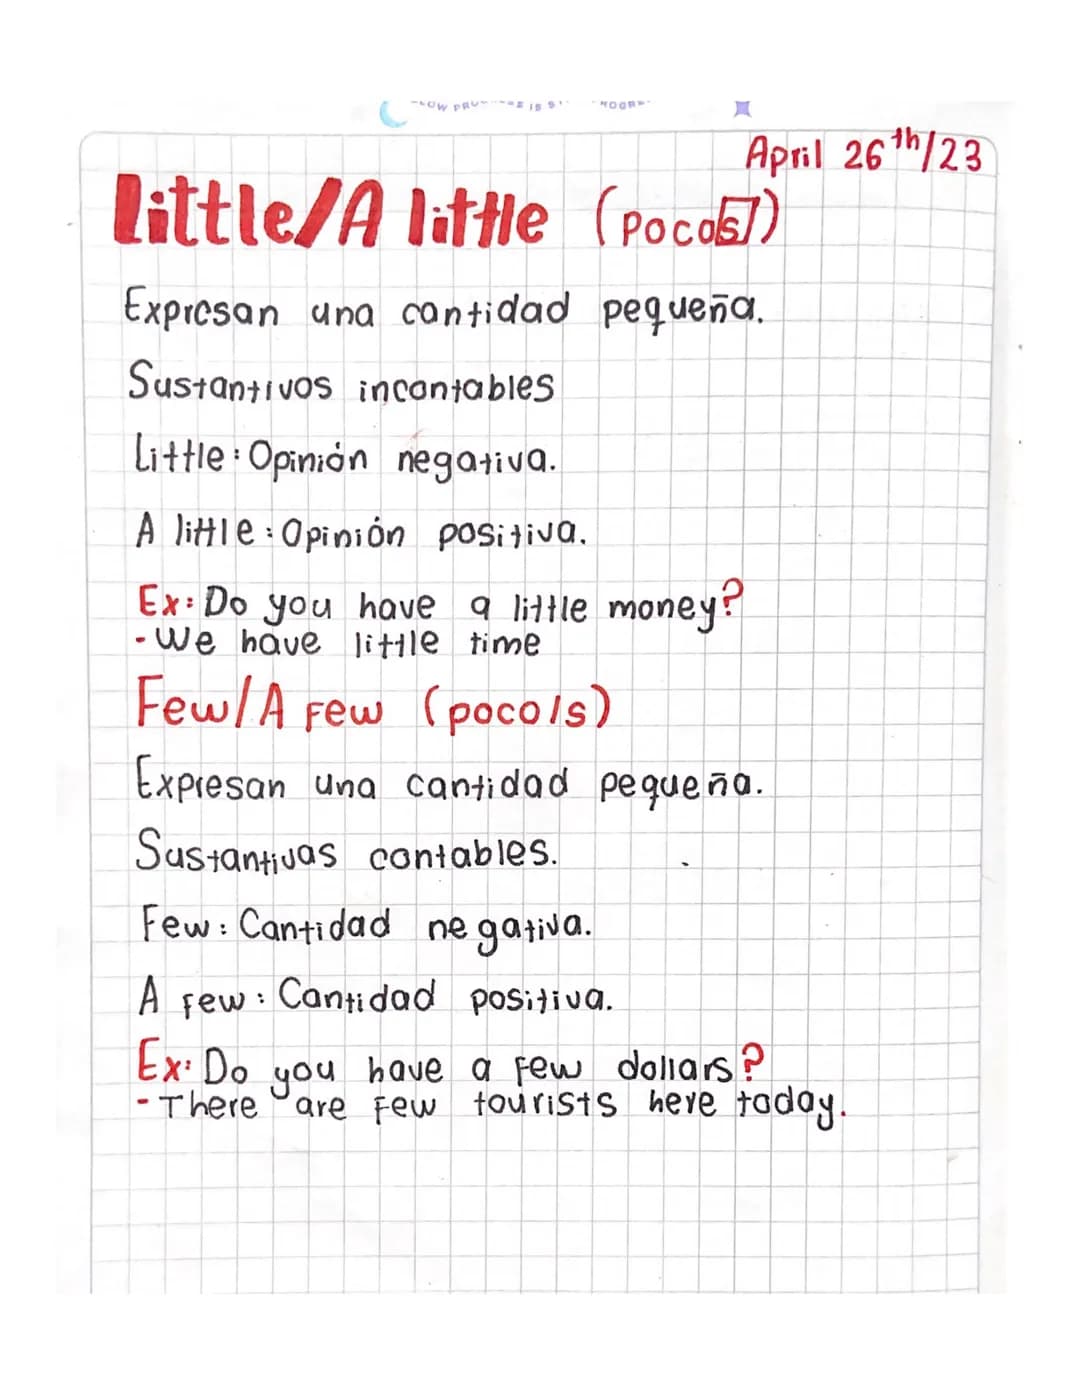 April 26th/23
Little/A little (pocos)
Expresan una cantidad pequeña.
Sustantivos incontables
Little: Opinión negativa.
A little: Opinión positiva.
Ex: Do you have a little money?
- We have little time
Few/A few (poco/s)
Expresan una cantidad pequeña.
Sustantivos contables.
Few: Cantidad negativa.
A few: Cantidad positiva.
Ex: Do you have a few dollars?
- There are few tourists here today.